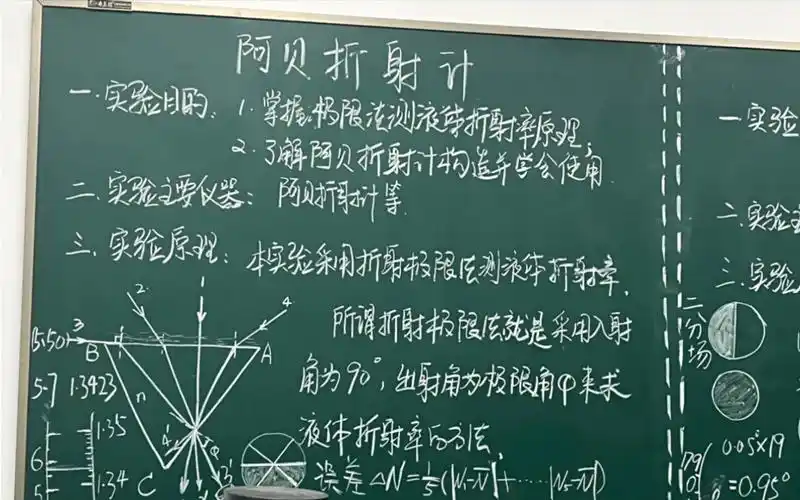 阿贝折射计
一.实验目的: 1.掌握极限法测液体折射率原理;
2.了解阿贝折射计构造并学会使用
二.实验主要仪器: 阿贝折射计等.
三.实验原理: 本实验采用折射极限法测液体折射率,
所谓折射极限法就是采用入射
角为90°,出射角为极限角φ来求
液体折射率的方法,
误差 △N=1/5(|N₁-N̄|+……|N₅-N̄|)
2
4
3
B
A
n
C
1.3423
1.35
6
1.34
5
一 实验
二.实验
三.实验
二分场
0.05×19
=0.95°